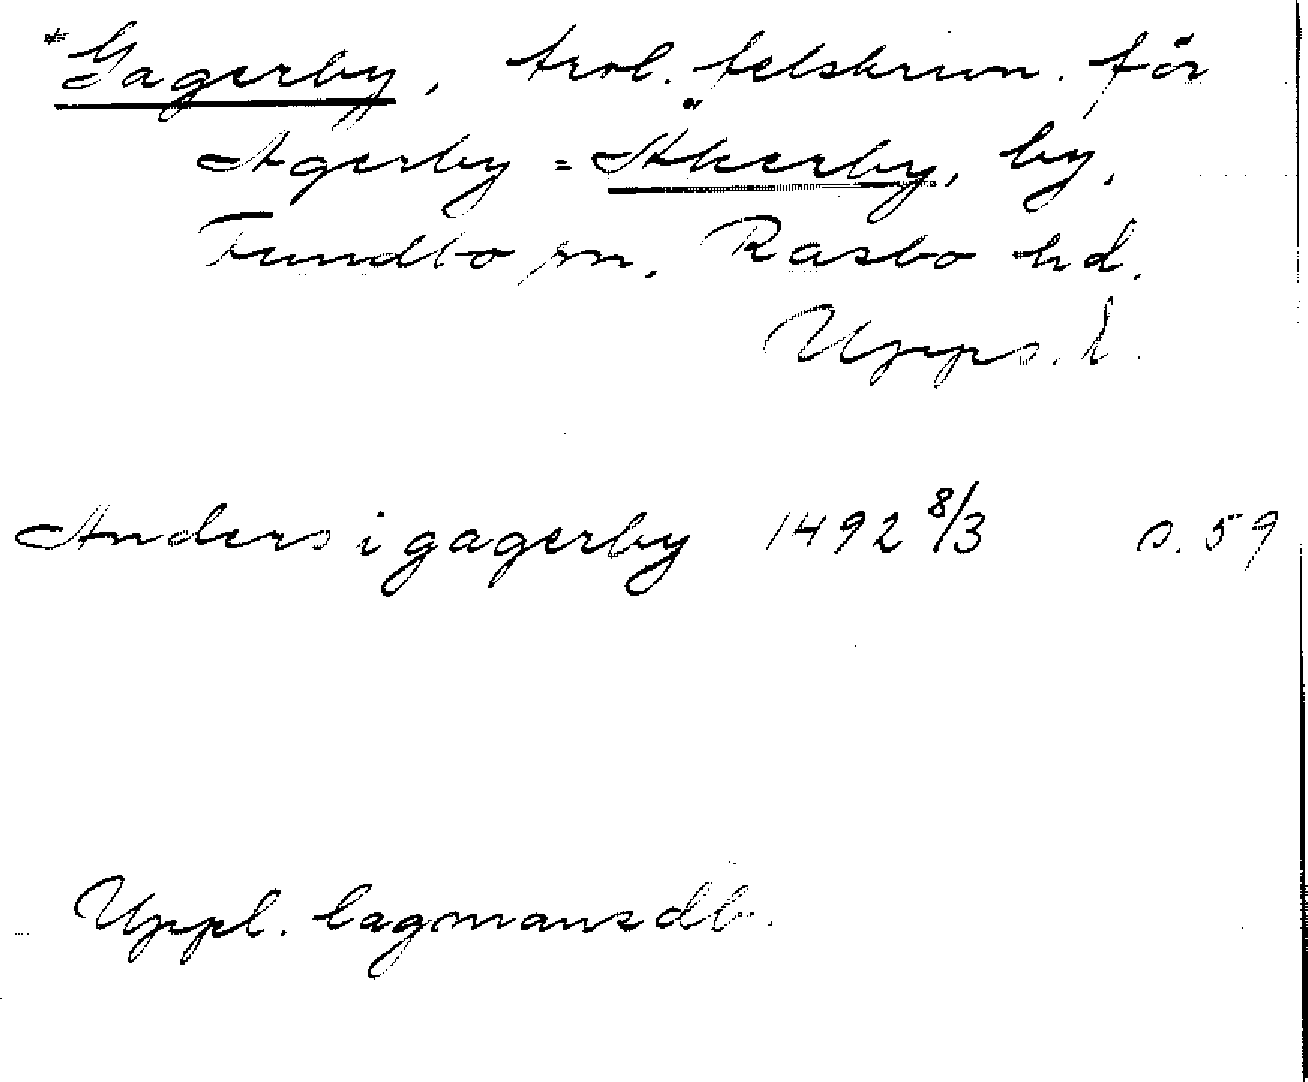 *Gagerby, trol. felskrivn. för
Agerby = Åkerby, by,
Funbo sn. Rasbo hd.
Upps. l.
Anders i gagerby 1492 8/3 s. 59
Uppl. lagmansdb.